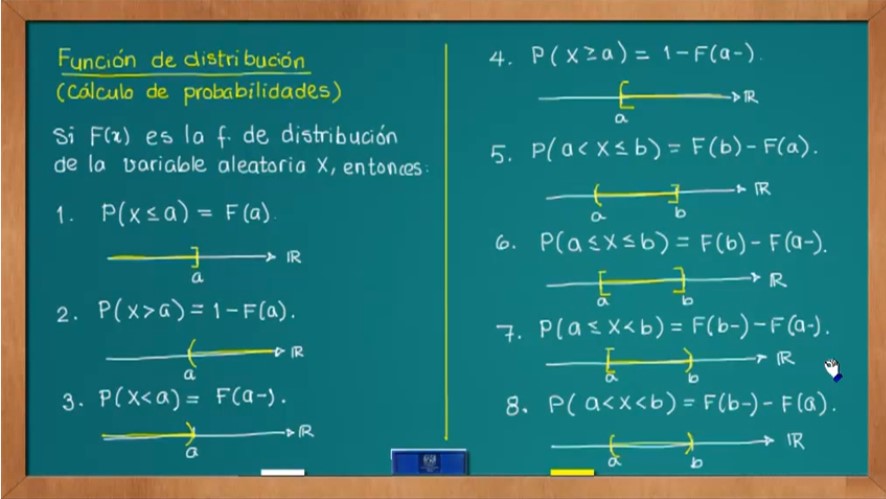 Función de distribución
(Cálculo de probabilidades)
Si F(x) es la f. de distribución
de la variable aleatoria X, entonces:
1. P(X ≤ a) = F(a).
ℝ
a
2. P(X > a) = 1 - F(a).
ℝ
a
3. P(X < a) = F(a-).
ℝ
a
4. P(X ≥ a) = 1 - F(a-).
ℝ
a
5. P(a < X ≤ b) = F(b) - F(a).
ℝ
a b
6. P(a ≤ X ≤ b) = F(b) - F(a-).
ℝ
a b
7. P(a ≤ X < b) = F(b-) - F(a-).
ℝ
a b
8. P(a < X < b) = F(b-) - F(a).
ℝ
a b